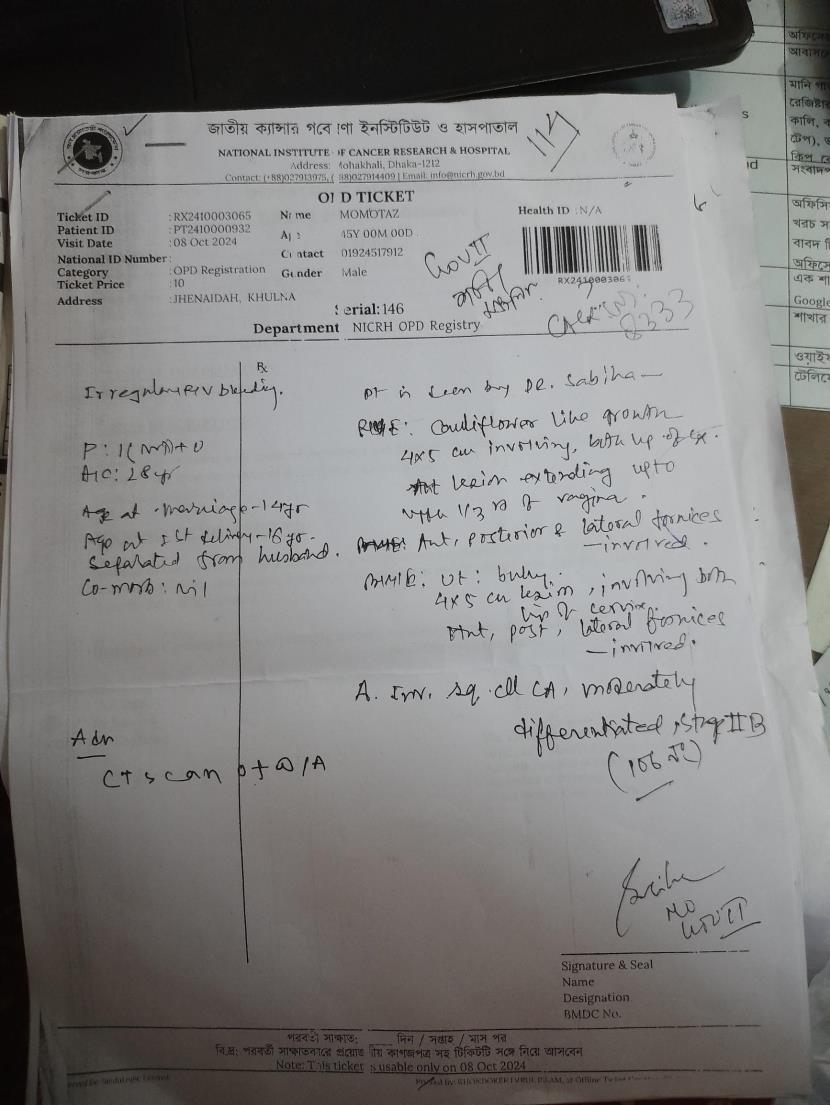 জাতীয় ক্যান্সার গবে ণা ইনস্টিটিউট ও হাসপাতাল
NATIONAL INSTITUTE OF CANCER RESEARCH & HOSPITAL
Address: Mohakhali, Dhaka-1212
Contact: (+88)027913975, ( 88)027914409 | Email: info@nicrh.gov.bd
117
OPD TICKET
Ticket ID :RX2410003065 Name MOMOTAZ Health ID :N/A
Patient ID :PT2410000932 Age 45Y 00M 00D
Visit Date :08 Oct 2024 Contact 01924517912
National ID Number:
Category :OPD Registration Gender Male
RX2410003065
Ticket Price :10
Address :JHENAIDAH, KHULNA
Serial:146
Department NICRH OPD Registry
8333
Rx
Irregular P/V bleeding.
P: 1(NVD)+0
ALC: 28 yr
Age at marriage-14yr
Age at 1st delivery-16 yr.
Separated from husband.
Co-morb: Nil
Adv
CT scan of W/A
Pt is seen by Dr. Sabiha
Cauliflower like growth
4x5 cm involving, both lip of cx.
Ant lesion extending upto
upper 1/3 rd of vagina.
Ant, posterior & lateral fornices
—involved.
BME: Ut: bulky.
4x5 cm lesion, involving both
lip of cervix.
Ant, post, lateral fornices
—involved.
A. Inv. sq. cell CA, moderately
differentiated, stage II B
MO
Signature & Seal
Name
Designation
BMDC No.
পরবর্তী সাক্ষাত: দিন / সপ্তাহ / মাস পর
বি.দ্র: পরবর্তী সাক্ষাতকারে প্রয়োজ নীয় কাগজপত্র সহ টিকিটটি সঙ্গে নিয়ে আসবেন
Note: This ticket is usable only on 08 Oct 2024